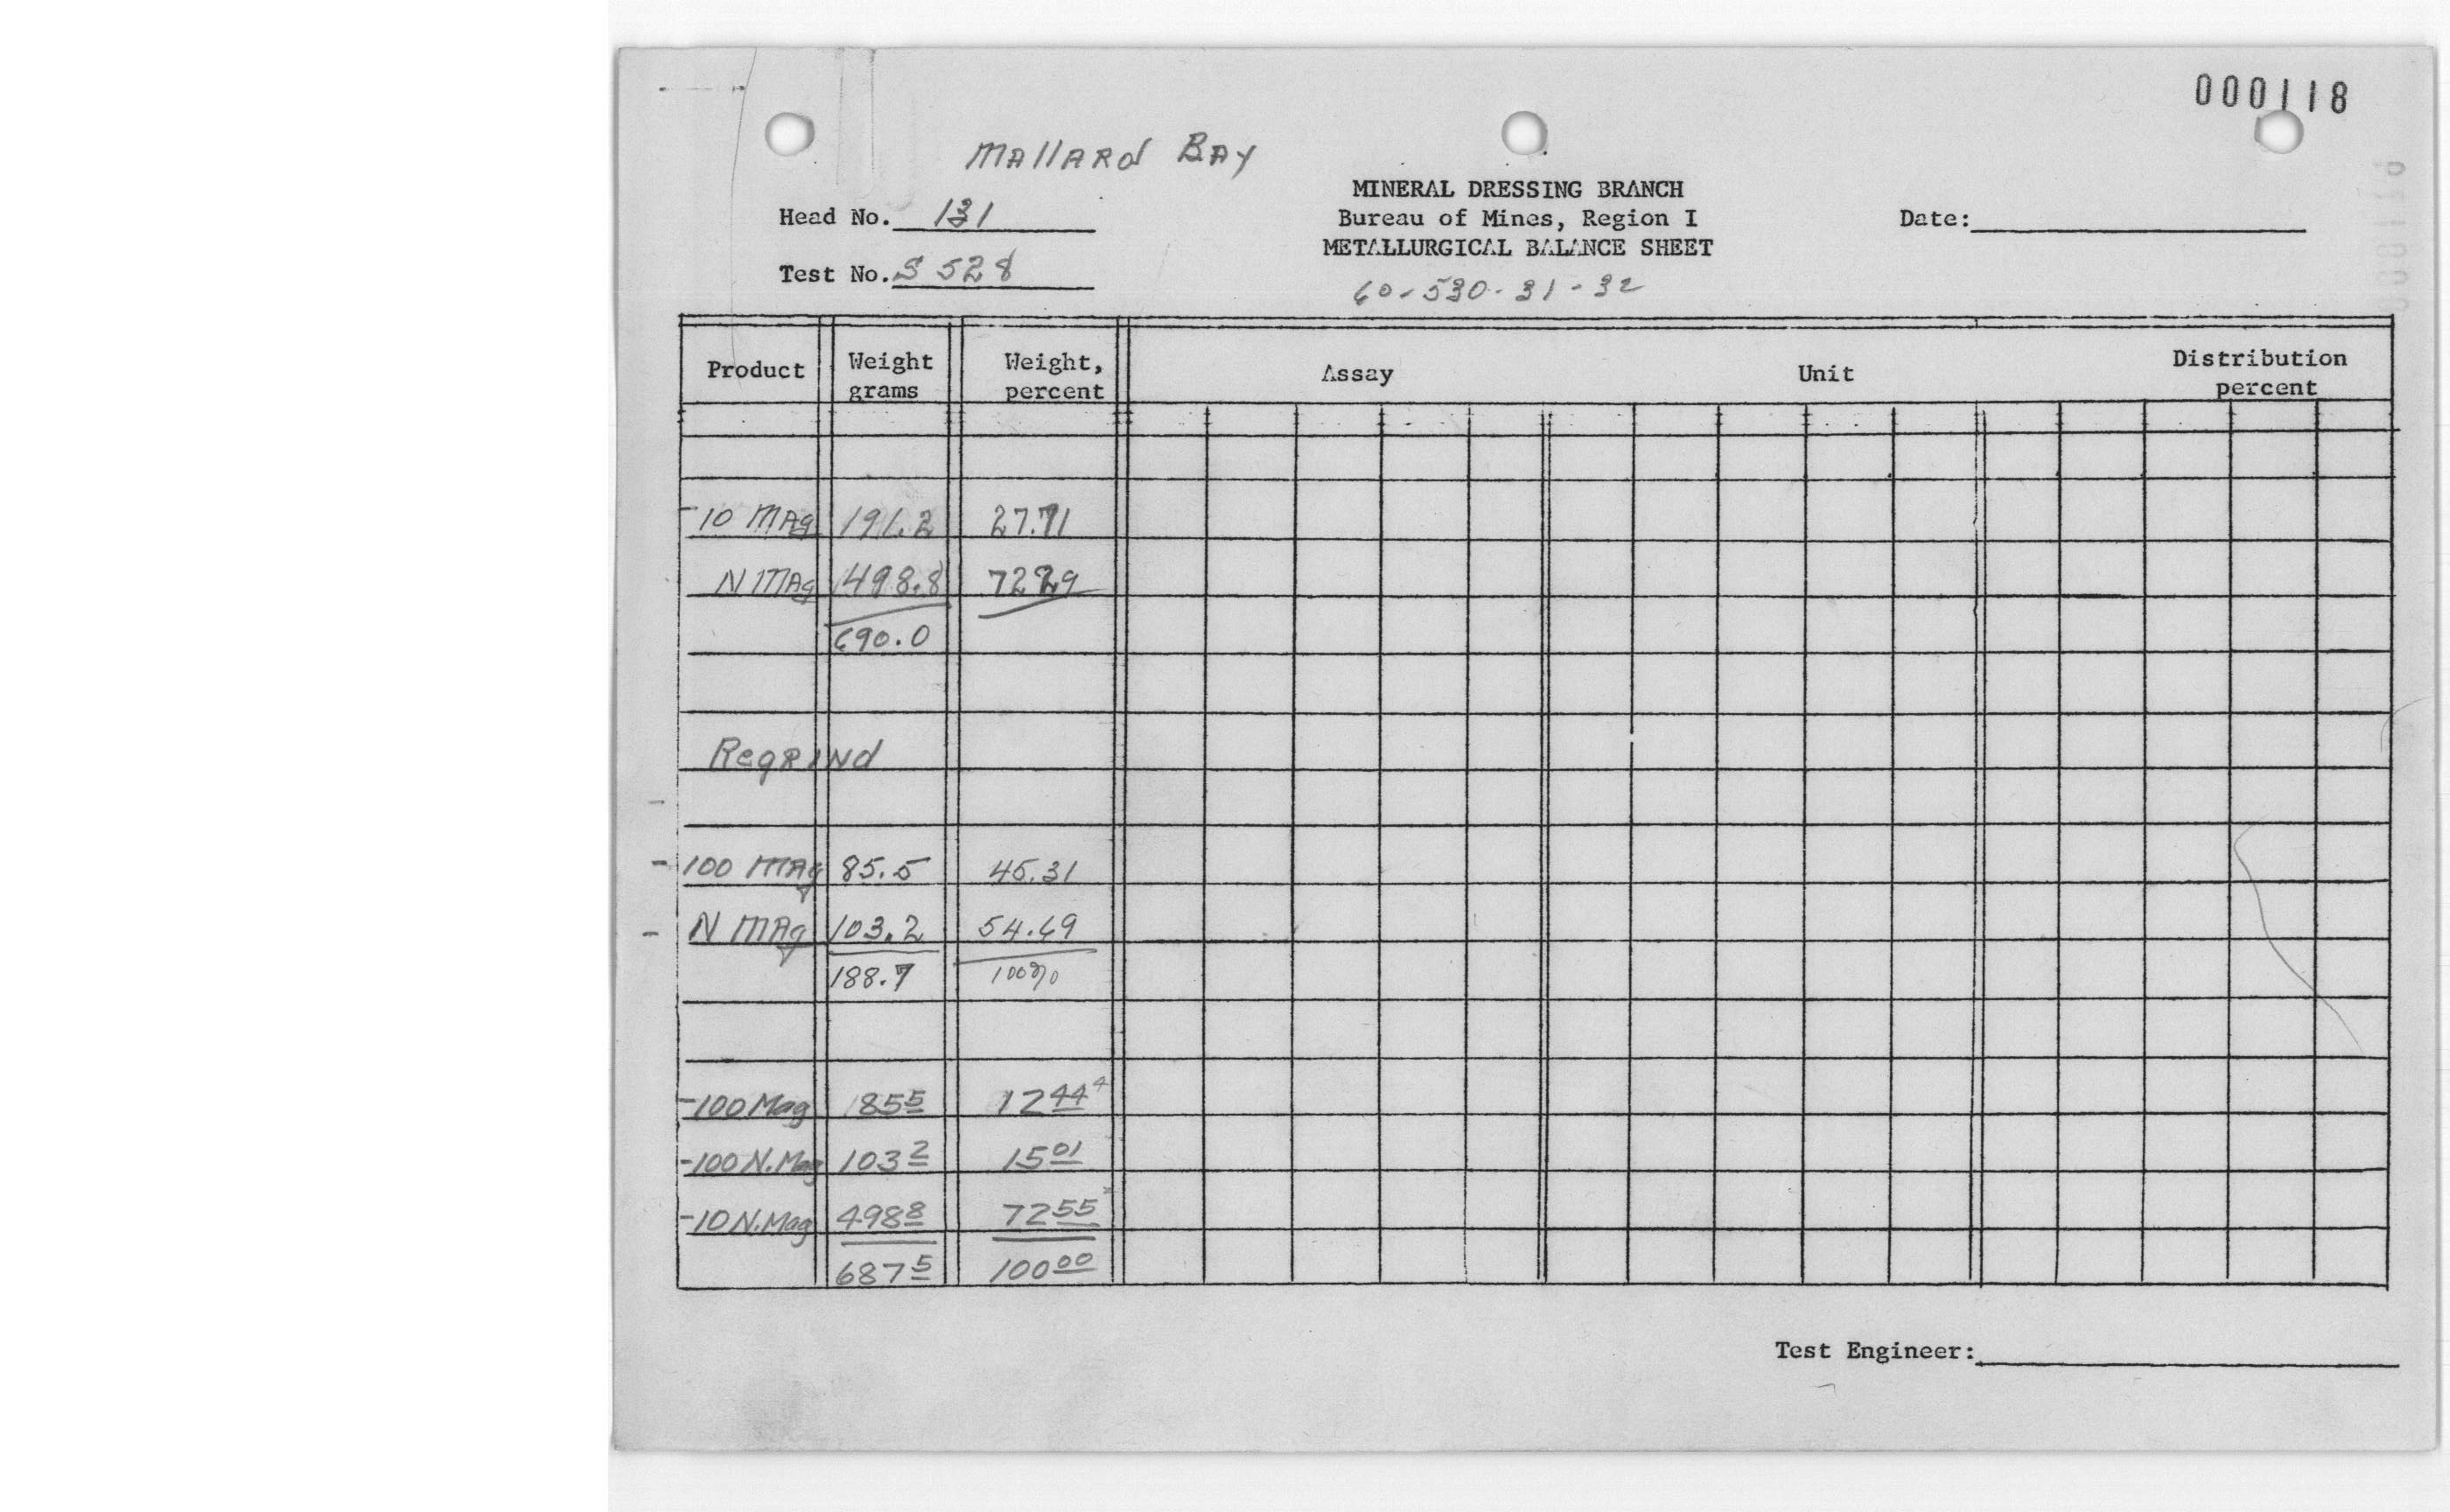 000118
MAllARD BAY
MINERAL DRESSING BRANCH
Head No. 131 Bureau of Mines, Region I Date:
METALLURGICAL BALANCE SHEET
Test No. S 528
60-530-31-32
Product Weight grams Weight, percent Assay Unit Distribution percent
-10 MAg 191.2 27.71
N MAg 498.8 72.29
690.0
RegRINd
- 100 MAg 85.5 45.31
- N MAg 103.2 54.69
188.7 100%
-100 Mag 85 5 12 44 4
-100 N.Mag 103 2 15 01
-10 N.Mag 498 8 72 55
687 5 100 00
Test Engineer: